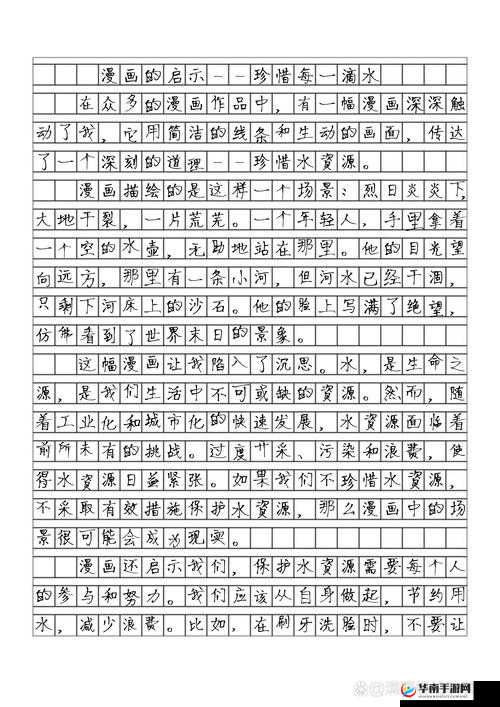 漫画的启示--珍惜每一滴水
在众多的漫画作品中，有一幅漫画深深触
动了我，它用简洁的线条和生动的画面，传达
了一个深刻的道理--珍惜水資源。
漫画描绘的是这样一个场景：烈日炎炎下，
大地干裂，一片荒芜。一个年轻人，手里拿着
一个空的水壶，无助地站在那里。他的目光望
向远方，那里有一条小河，但河水已经干涸，
只剩下河床上的沙石。他的脸上写满了绝望，
仿佛看到了世界末日的景象。
这幅漫画让我陷入了沉思。水，是生命之
源，是我们生活中不可或缺的资源。然而，随
着工业化和城市化的快速发展，水資源面临着
前所未有的挑战。过度开采、污染和浪费，使
得水資源日益紧张。如果我们不珍惜水資源，
不采取有效措施保护水資源，那么漫画中的场
景很可能会成为现实。
漫画还启示我们，保护水資源需要每个人
的参与和努力。我们应该从自身做起，节约用
水，减少浪费。比如，在刷牙洗脸时，不要让
华南手游网